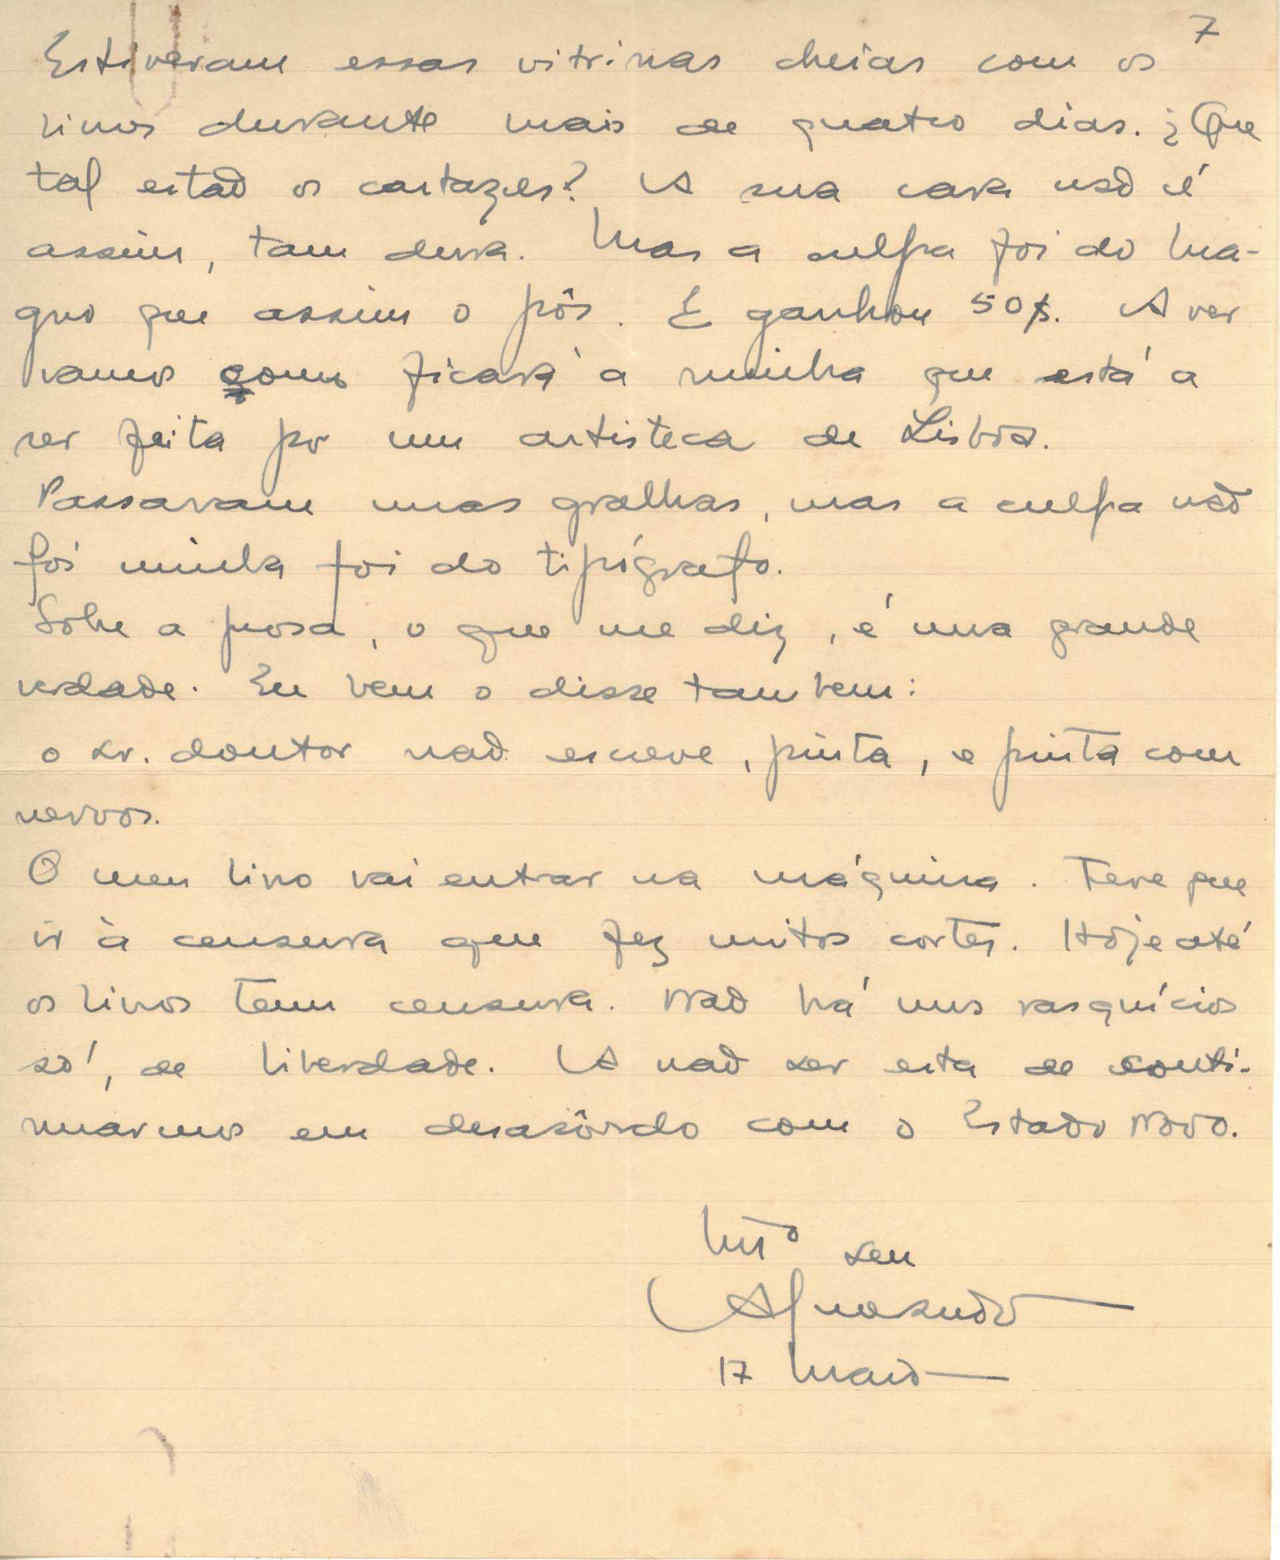 7
Estiveram essas vitrinas cheias com os
livros durante mais de quatro dias. ¿Que
tal estão os cartazes? A sua cara não é
assim, tam dura. Mas a culpa foi do Ma-
gno que assim o pôs. E ganhou 50$. A ver
vamos como ficará a minha que está a
ser feita por um artisteca de Lisboa.
Passaram umas gralhas, mas a culpa não
foi minha foi do tipógrafo.
Sobre a prosa, o que me diz, é uma grande
verdade. Eu bem o disse tambem:
o sr. doutor não escreve, pinta, e pinta com
nervos.
O meu livro vai entrar na máquina. Teve que
ir à censura que fez muitos cortes. Hoje até
os livros tem censura. Não há uns rasquícios
só, de liberdade. A não ser esta de conti-
nuarmos em desacôrdo com o Estado Novo.
Mtº seu
17 Maio